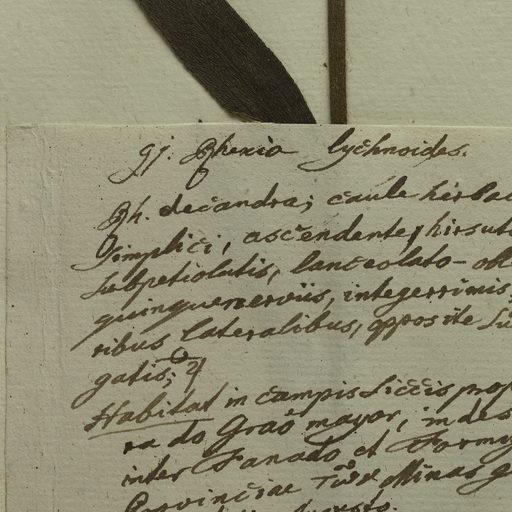 91. Rhexia lychnoides.
Rh. decandra; caule herbac
simplici, ascendente, hirsuto
subpetiolatis, lanceolato-obl
quinquenerviis, integerrimis
ribus lateralibus, opposite
gatis; ♃
Habitat in campis siccis prop
ra do Graõ mayor, in des
inter Fanado et Formig
Provinciae Minas g